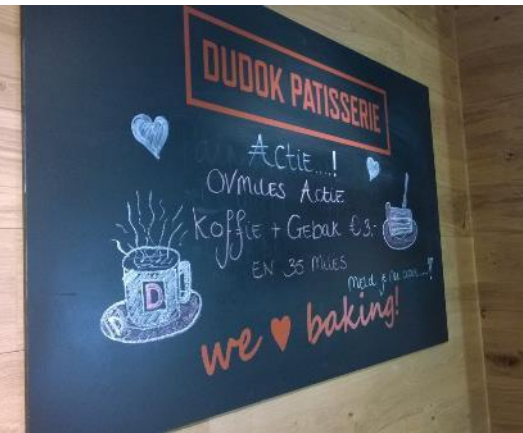 DUDOK PATISSERIE
Actie....!
OVmiles Actie
Koffie + Gebak €3,-
EN 35 Miles
Meld je
we ♥ baking!
D
D